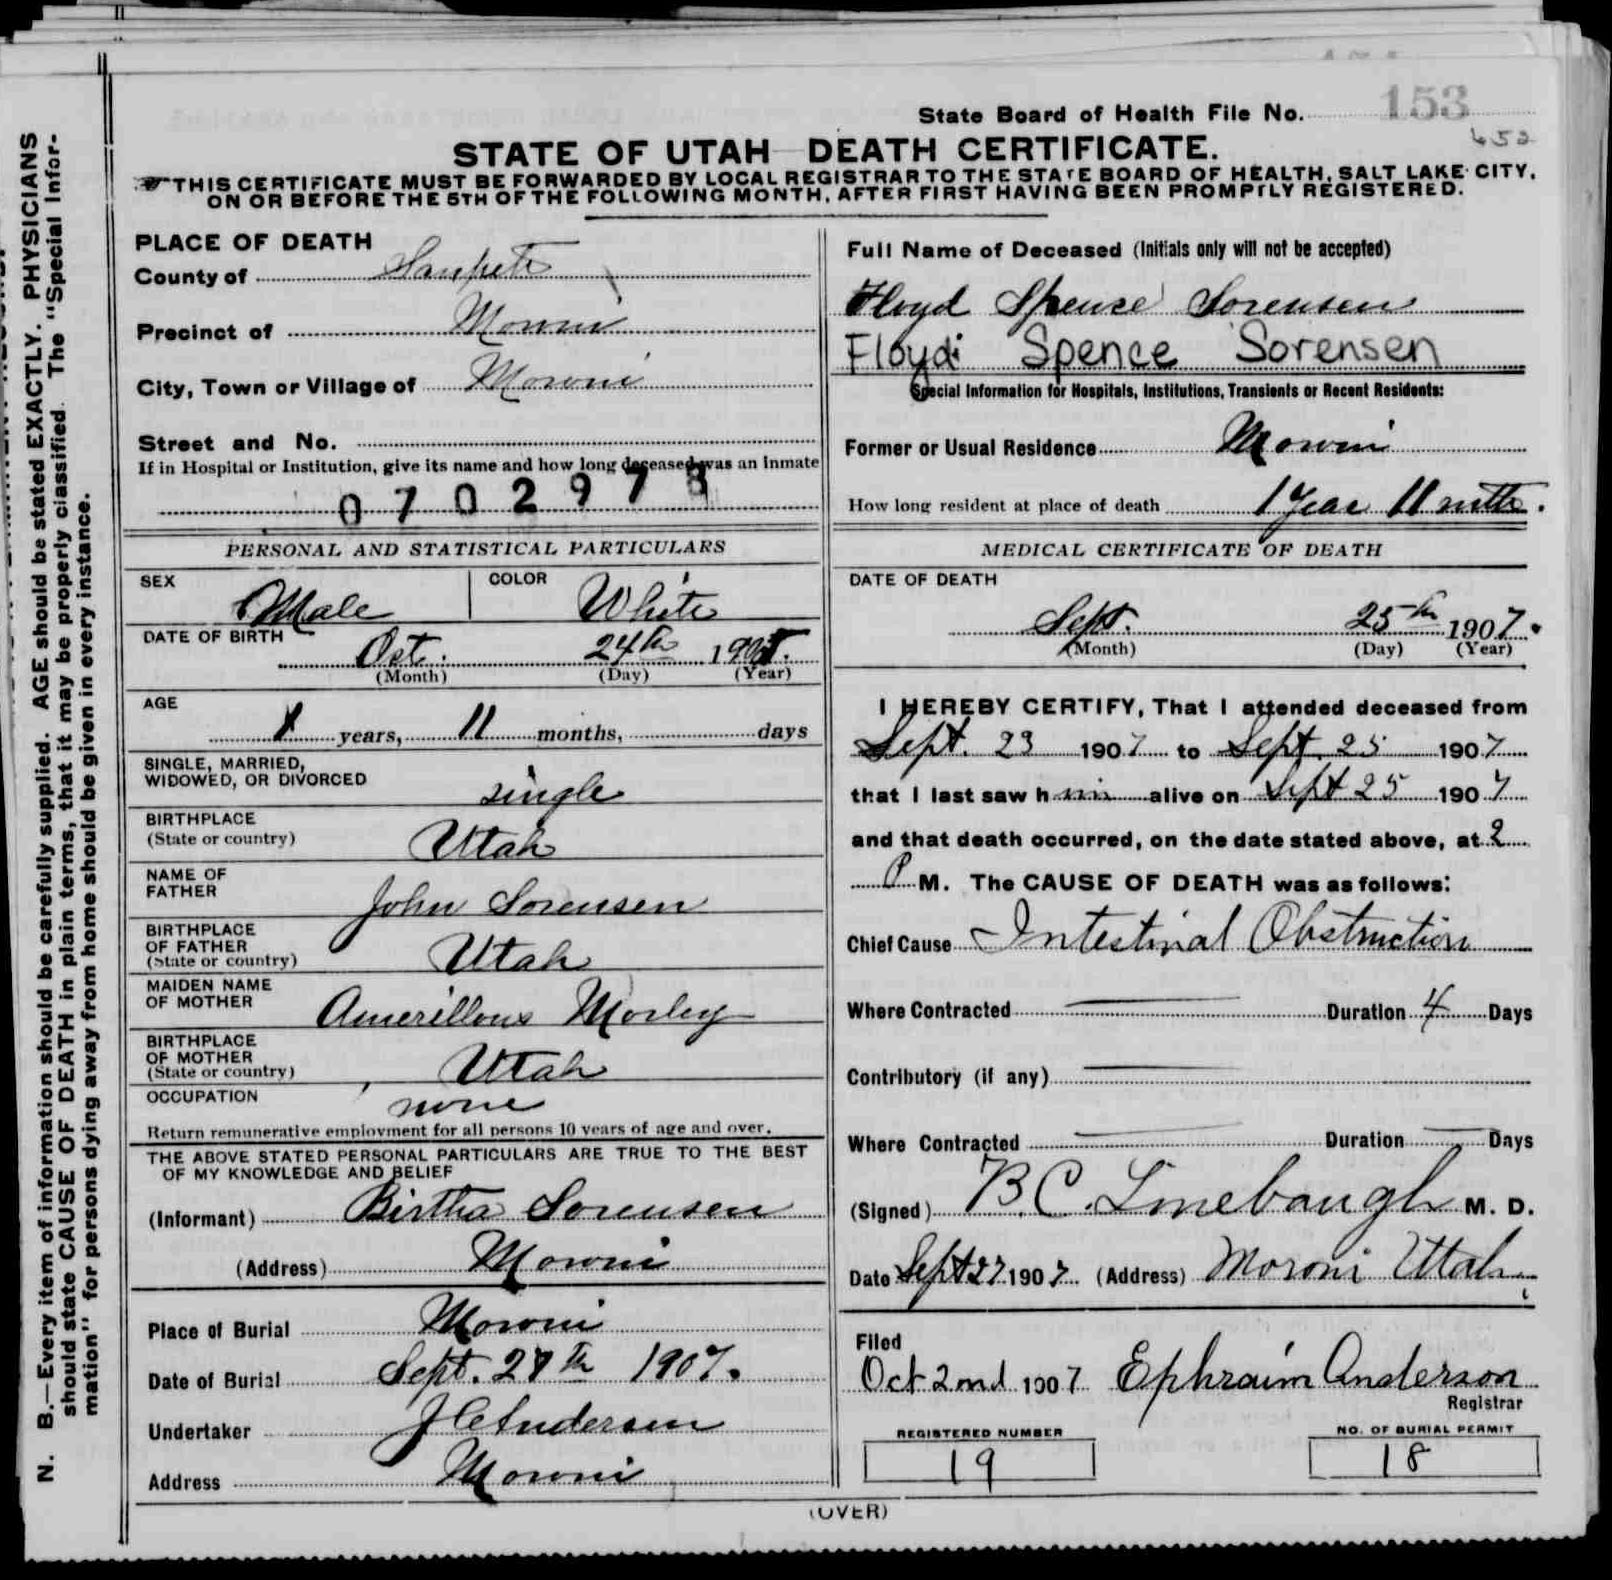 State Board of Health File No. 153
652
STATE OF UTAH DEATH CERTIFICATE.
THIS CERTIFICATE MUST BE FORWARDED BY LOCAL REGISTRAR TO THE STATE BOARD OF HEALTH, SALT LAKE CITY,
ON OR BEFORE THE 5TH OF THE FOLLOWING MONTH, AFTER FIRST HAVING BEEN PROMPTLY REGISTERED.
N. B.—Every item of information should be carefully supplied. AGE should be stated EXACTLY. PHYSICIANS
should state CAUSE OF DEATH in plain terms, that it may be properly classified. The "Special Infor-
mation" for persons dying away from home should be given in every instance.
PLACE OF DEATH
County of Sanpete
Precinct of Moroni
City, Town or Village of Moroni
Street and No.
If in Hospital or Institution, give its name and how long deceased was an inmate
0702978
PERSONAL AND STATISTICAL PARTICULARS
SEX Male COLOR White
DATE OF BIRTH
Oct. 24th 1905.
(Month) (Day) (Year)
AGE
1 years, 11 months, days
SINGLE, MARRIED,
WIDOWED, OR DIVORCED single
BIRTHPLACE
(State or country) Utah
NAME OF
FATHER John Sorensen
BIRTHPLACE
OF FATHER
(State or country) Utah
MAIDEN NAME
OF MOTHER Amerillous Morley
BIRTHPLACE
OF MOTHER
(State or country) Utah
OCCUPATION none
Return remunerative employment for all persons 10 years of age and over.
THE ABOVE STATED PERSONAL PARTICULARS ARE TRUE TO THE BEST
OF MY KNOWLEDGE AND BELIEF
(Informant) Birtha Sorensen
(Address) Moroni
Place of Burial Moroni
Date of Burial Sept. 27th 1907.
Undertaker J C Andersen
Address Moroni
Full Name of Deceased (Initials only will not be accepted)
Floyd Spence Sorensen
Floyd Spence Sorensen
Special Information for Hospitals, Institutions, Transients or Recent Residents:
Former or Usual Residence Moroni
How long resident at place of death 1 year 11 mths.
MEDICAL CERTIFICATE OF DEATH
DATE OF DEATH
Sept. 25th 1907.
(Month) (Day) (Year)
I HEREBY CERTIFY, That I attended deceased from
Sept. 23 1907 to Sept. 25 1907
that I last saw him alive on Sept 25 1907
and that death occurred, on the date stated above, at 2
P M. The CAUSE OF DEATH was as follows:
Chief Cause Intestinal Obstruction
Where Contracted — Duration 4 Days
Contributory (if any) —
Where Contracted — Duration — Days
(Signed) B. C. Linebaugh M. D.
Date Sept 27 1907 (Address) Moroni Utah
Filed
Oct 2nd 1907 Ephraim Anderson
Registrar
REGISTERED NUMBER NO. OF BURIAL PERMIT
19 18
(OVER)